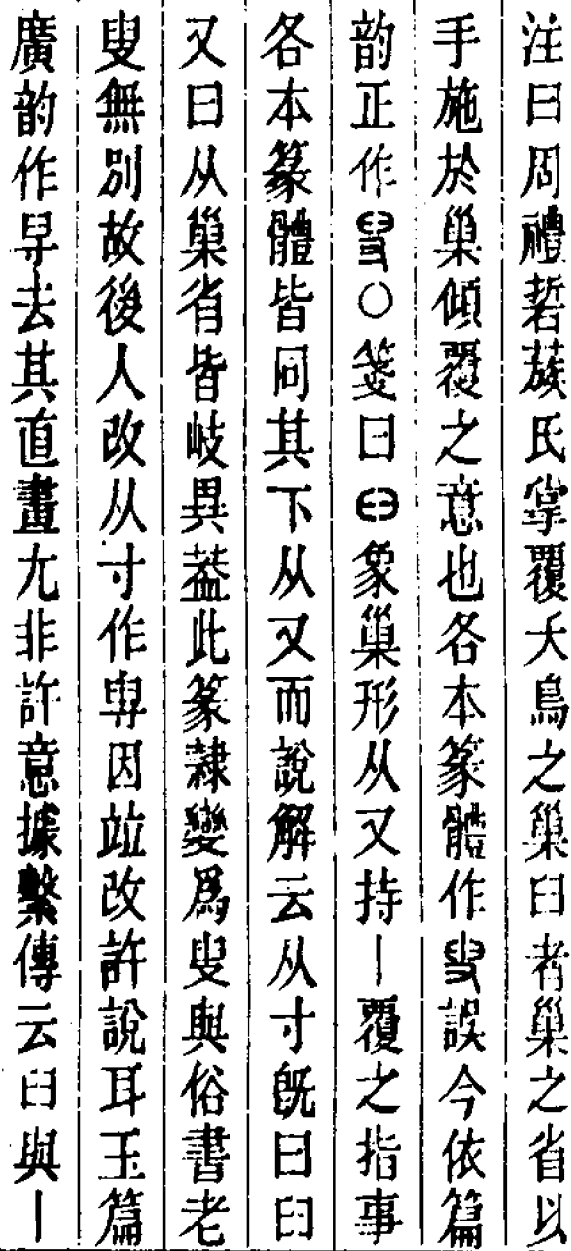 注曰周禮硩蔟氏掌覆夭鳥之巢臼者巢之省以
手施於巢傾覆之意也各本篆體作誤今依篇
韵正作○箋曰象巢形从又持丨覆之指事
各本篆體皆同其下从又而說解云从寸旣曰臼
又曰从巢省皆岐異葢此篆隸變爲叟與俗書老
叟無別故後人改从寸作因竝改許說耳玉篇
廣韵作去其直畫尤非許意據繫傳云臼與丨